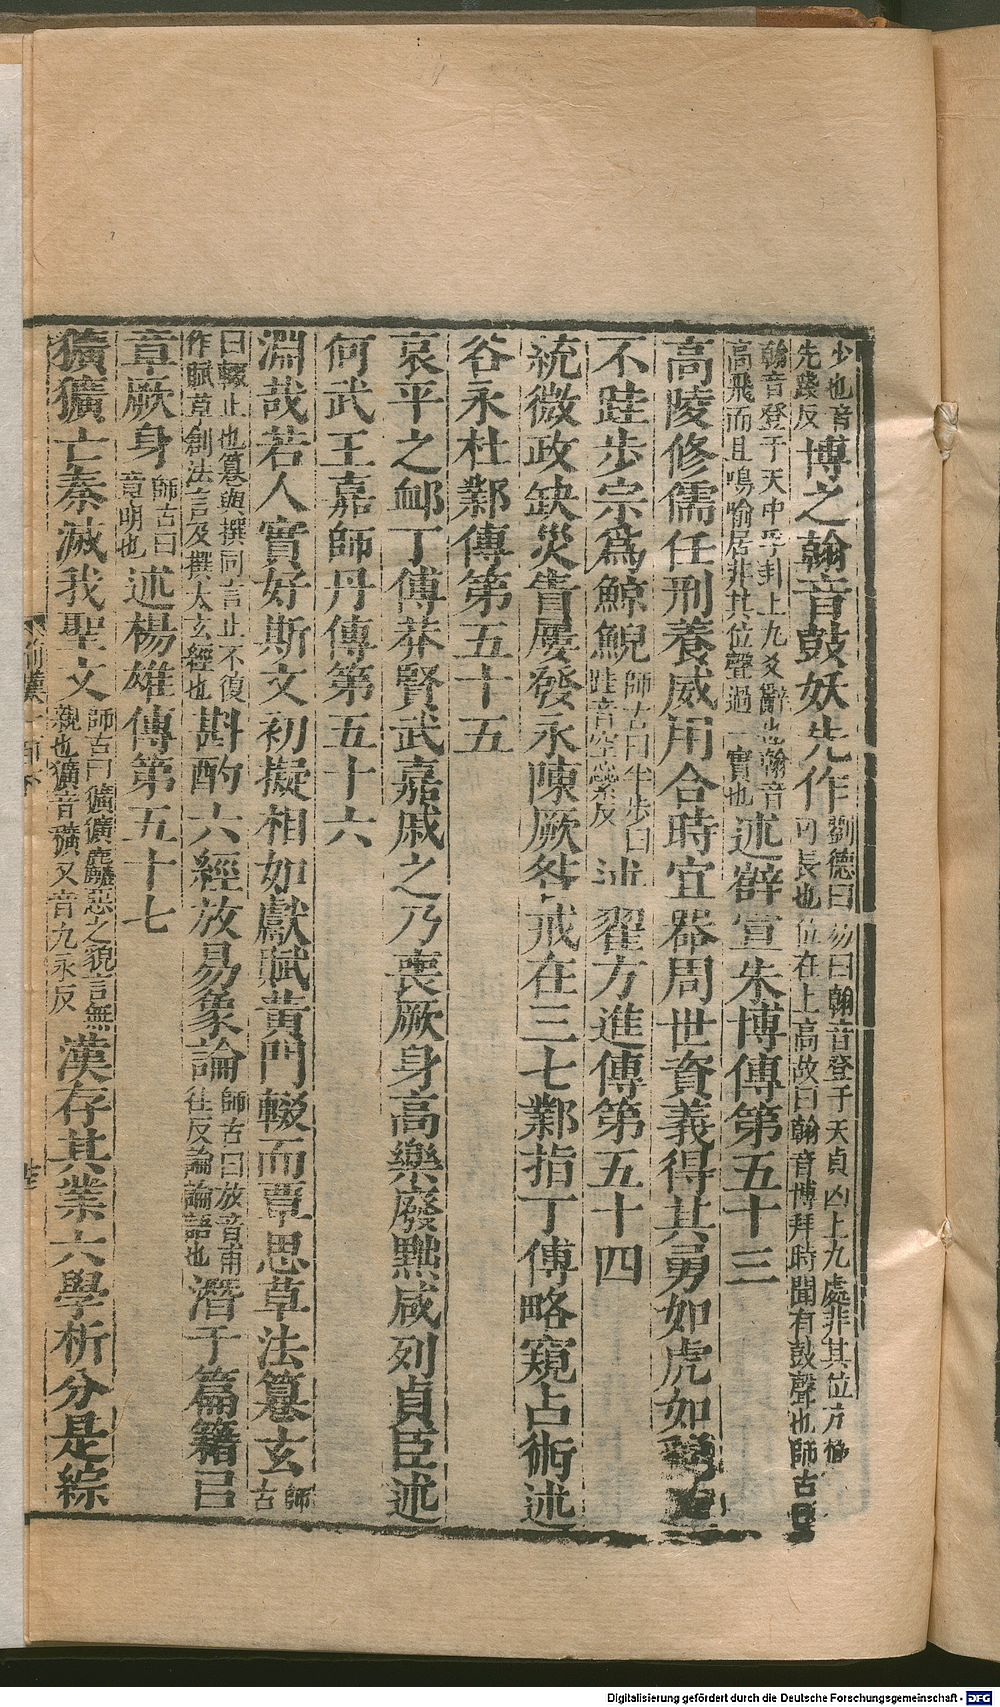 少也音先踐反博之翰音鼓妖先作劉德曰易曰翰音登于天貞凶上九處非其位亢極故曰翰音博拜時聞有鼓聲也師古曰
翰音登于天中孚卦上九爻辭也翰音高飛而且鳴喻居非其位聲過實也述薛宣朱博傳第五十三
高陵修儒任刑養威用合時宜器周世資義得其勇如虎如
不跬步宗爲鯨鯢師古曰半步曰跬音空橤反述翟方進傳第五十四
統微政缺災眚屢發永陳厥咎戒在三七鄴指丁傅略窺占術述
谷永杜鄴傳第五十五
哀平之卹丁傅莽賢武嘉戚之乃喪厥身高樂廢黜咸列貞臣述
何武王嘉師丹傳第五十六
淵哉若人實好斯文初擬相如獻賦黃門輟而覃思草法篹玄師古
曰輟止也篹與撰同言止不復作賦草創法言及撰太玄經也斟酌六經放易象論師古曰放音甫往反論論語也潛于篇籍㠯
章厥身師古曰章明也述楊雄傳第五十七
獷獷亡秦滅我聖文師古曰獷獷麤惡之貌言無親也獷音穬又音九永反漢存其業六學析分是綜
Digitalisierung gefördert durch die Deutsche Forschungsgemeinschaft - DFG